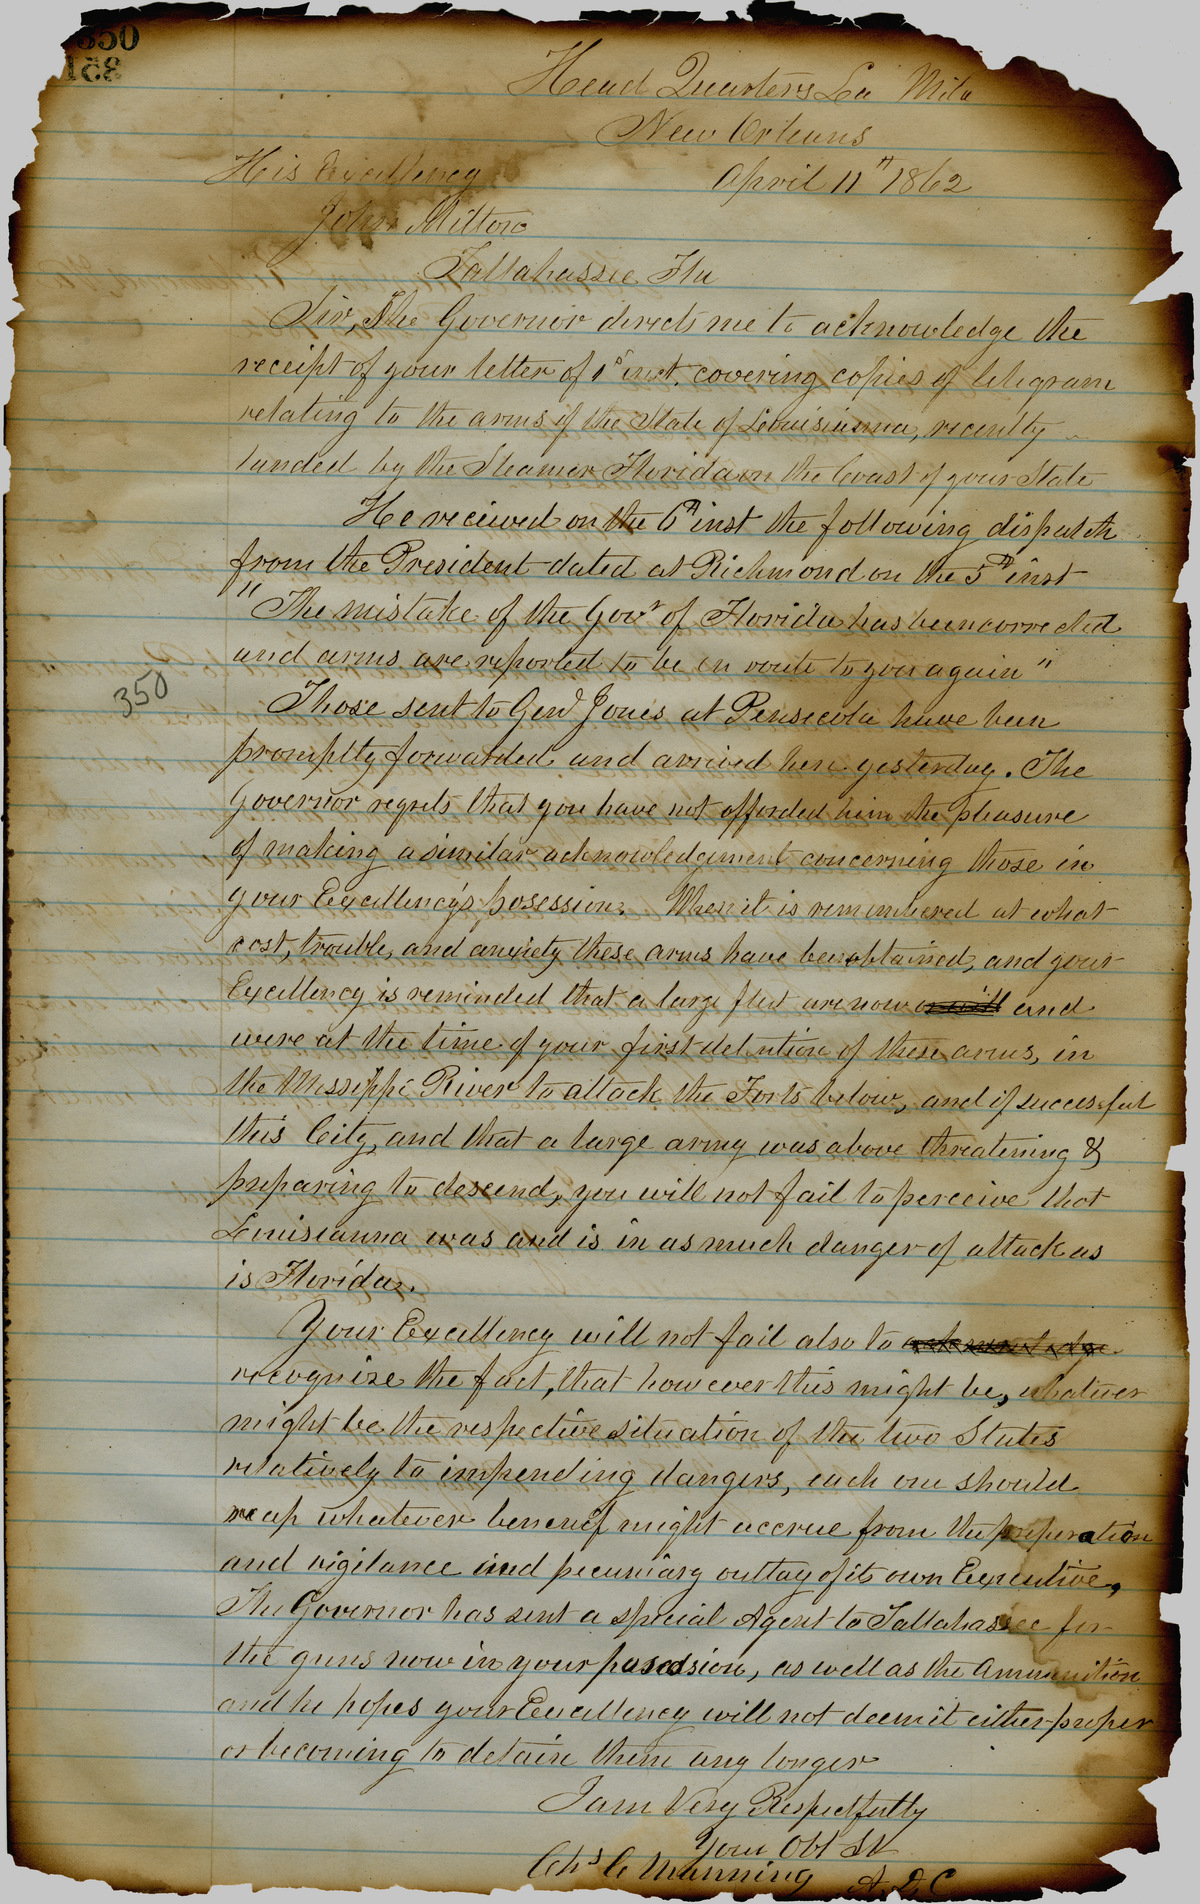 350
351
Head Quarters La Mila
New Orleans
His Excellency April 11" 1862
John Milton
Tallahassee Fla
Sir, The Governor directs me to acknowledge the
receipt of your letter of 1st inst. covering copies of telegram
relating to the arms of the State of Louisianna, recently
landed by the Steamer Florida on the Coast of your State
He recieved on the 6th inst the following dispatch
from the President dated at Richmond on the 5th inst
"The mistake of the Govr of Florida has been corrected
and arms are reported to be en route to you again"
350
Those sent to Genl Jones at Pensecola have been
promptly forwarded and arrived here yesterday. The
Governor regrets that you have not afforded him the pleasure
of making a similar acknowledgement concerning those in
your Excellency's posession. When it is remembered at what
cost, trouble, and anxiety these arms have been obtained, and your
Excellency is reminded that a large fleet are now and
were at the time of your first detention of these arms, in
the Missippi River to attack the Forts below, and if successful
this City, and that a large army was above threatening &
preparing to descend, you will not fail to perceive that
Louisianna was and is in as much danger of attack as
is Florida.
Your Excellency will not fail also to acknowledge
recognize the fact, that however this might be, whatever
might be the respective situation of the two States
relatively to impending dangers, each one should
reap whatever benenef might accrue from the preperation
and vigilance and pecuniary outlay of its own Executive,
The Governor has sent a special Agent to Tallahassee for
the guns now in your possession, as well as the Ammunition
and he hopes your Excellency will not deem it either proper
or becoming to detain them any longer
I am Very Respectfully
Your Obt St
Chs C Manning A. D. C